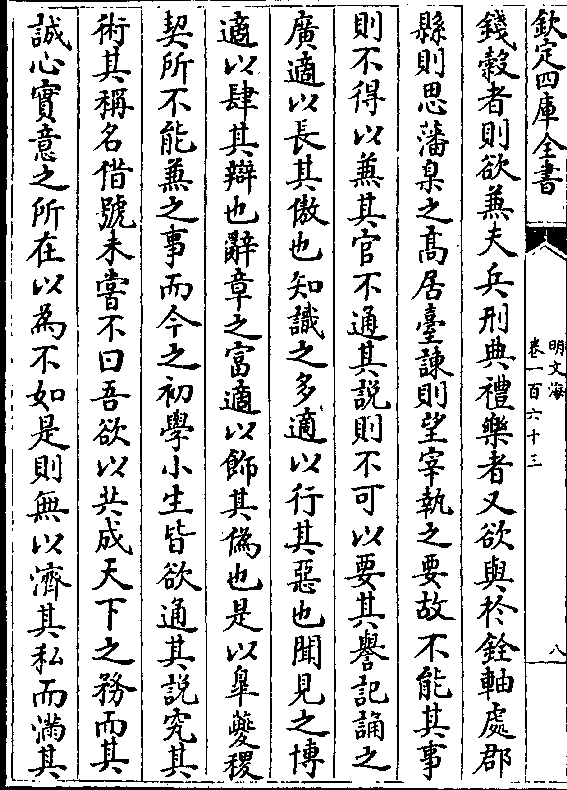 欽定四庫全書
明文海
卷一百六十三
八
錢糓者則欲兼夫兵刑典禮樂者又欲與於銓軸處郡
縣則思藩臬之髙居臺諫則望宰執之要故不能其事
則不得以兼其官不通其説則不可以要其譽記誦之
廣適以長其傲也知識之多適以行其惡也聞見之博
適以肆其辯也辭章之富適以飾其偽也是以臯夔稷
契所不能兼之事而今之初學小生皆欲通其説究其
術其稱名借號未嘗不曰吾欲以共成天下之務而其
誠心實意之所在以為不如是則無以濟其私而滿其